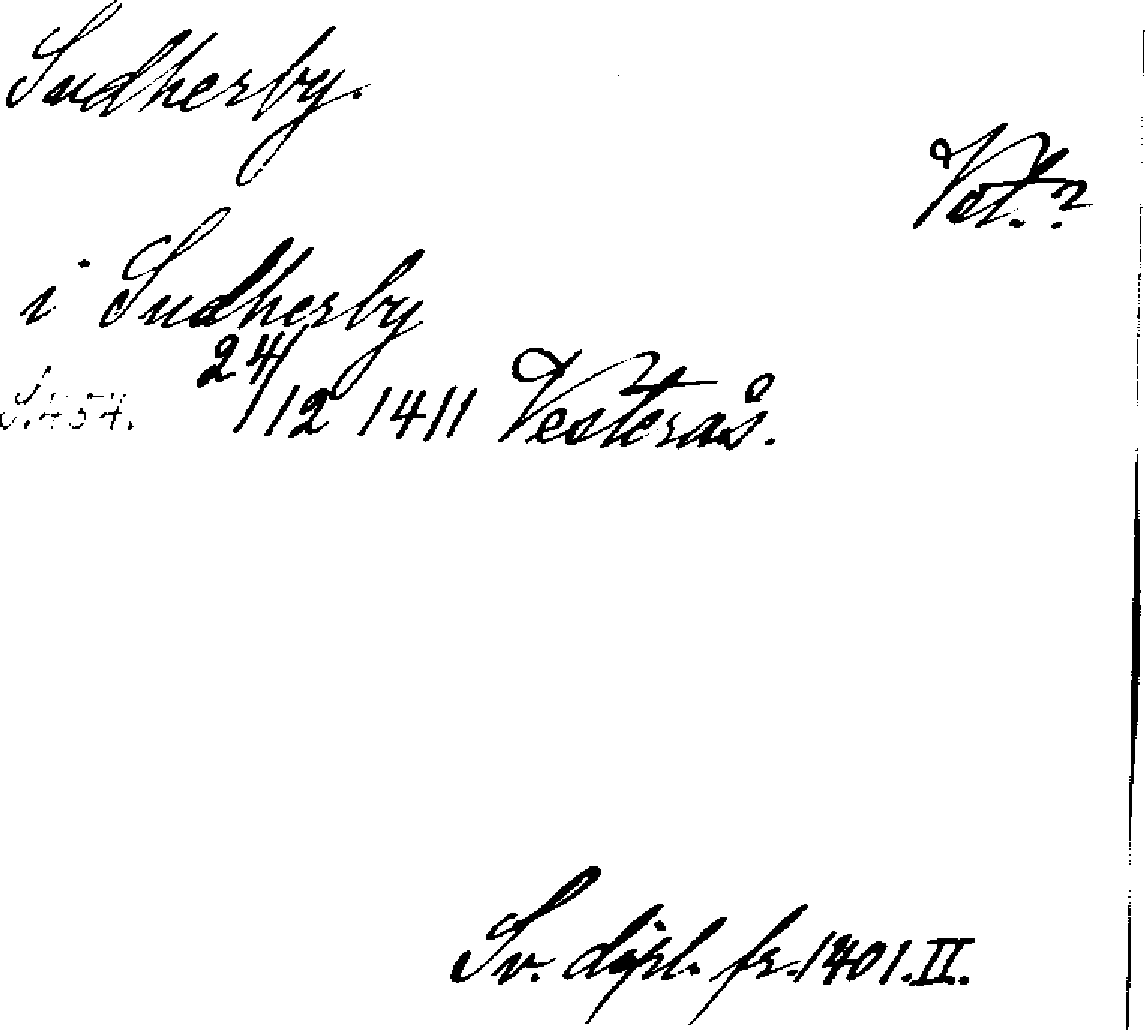 Sudherby.
Vst.?
i Sudherby
S. 454. 24/12 1411 Vesterås.
Sv. dipl. fr. 1401. II.